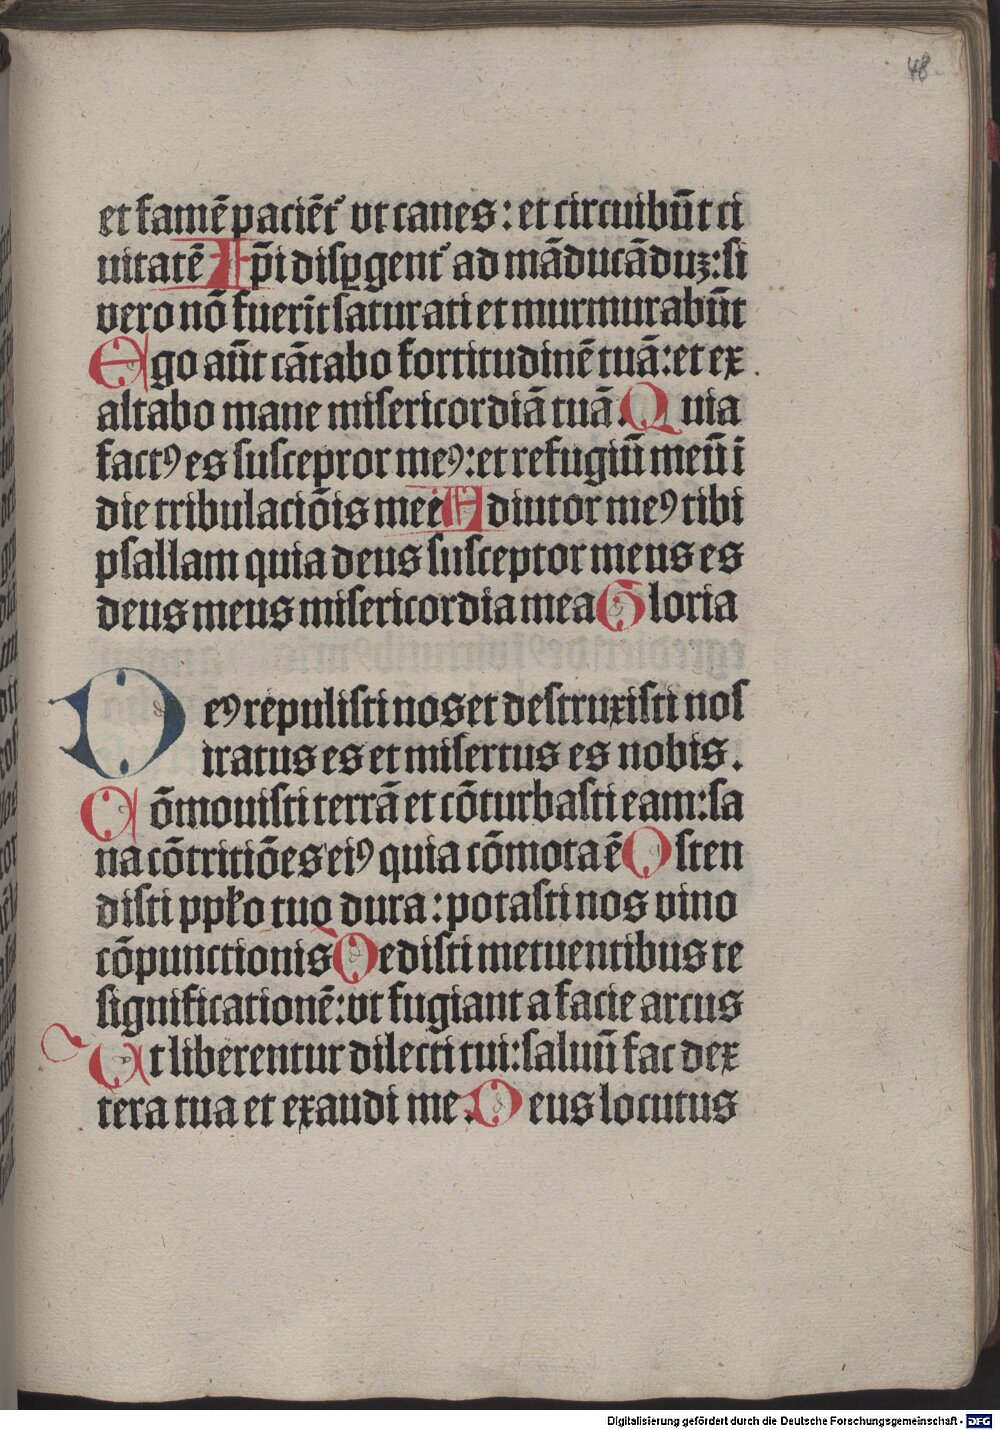 48
et famē paciēt᷒ ut canes : et circuibūt ci
uitatē Ip̄i disꝑgent᷒ ad mādūcāduꝫ : si
vero nō fuerīt saturati et murmurabūt
Ego aūt cātabo fortitudinē tuā : et ex
altabo mane misericordiā tuā . Quia
factꝰ es susceptor meꝰ : et refugiū meū i
die tribulaciōis mee Adiutor meꝰ tibi
psallam quia deus susceptor meus es
deus meus misericordia mea Gloria
Deꝰ repulisti nos et destruxisti nos
iratus es et misertus es nobis .
Cōmouisti terrā et cōturbasti eam : sa
na cōtritiōes eiꝰ quia cōmota ē Osten
disti ppl̄o tuo dura : potasti nos vino
cōpunctionis Dedisti metuentibus te
significationē : ut fugiant a facie arcus
Ut liberentur dilecti tui : saluū fac dex
tera tua et exaudi me . Deus locutus
Digitalisierung gefördert durch die Deutsche Forschungsgemeinschaft - DFG